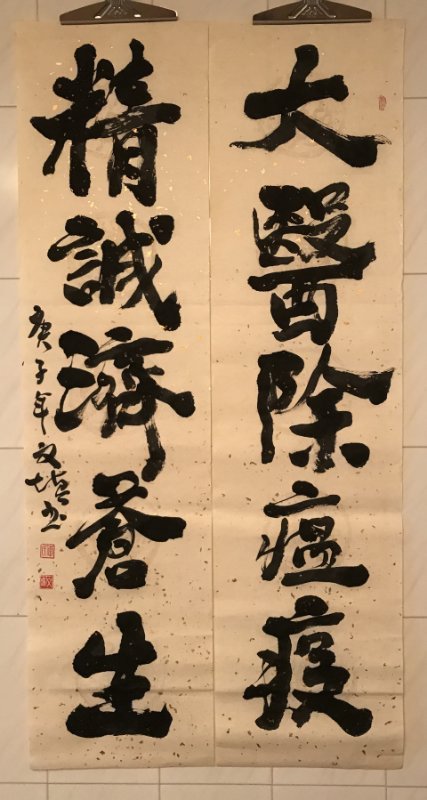 大醫除瘟疫
精誠濟蒼生
庚子年文塤书